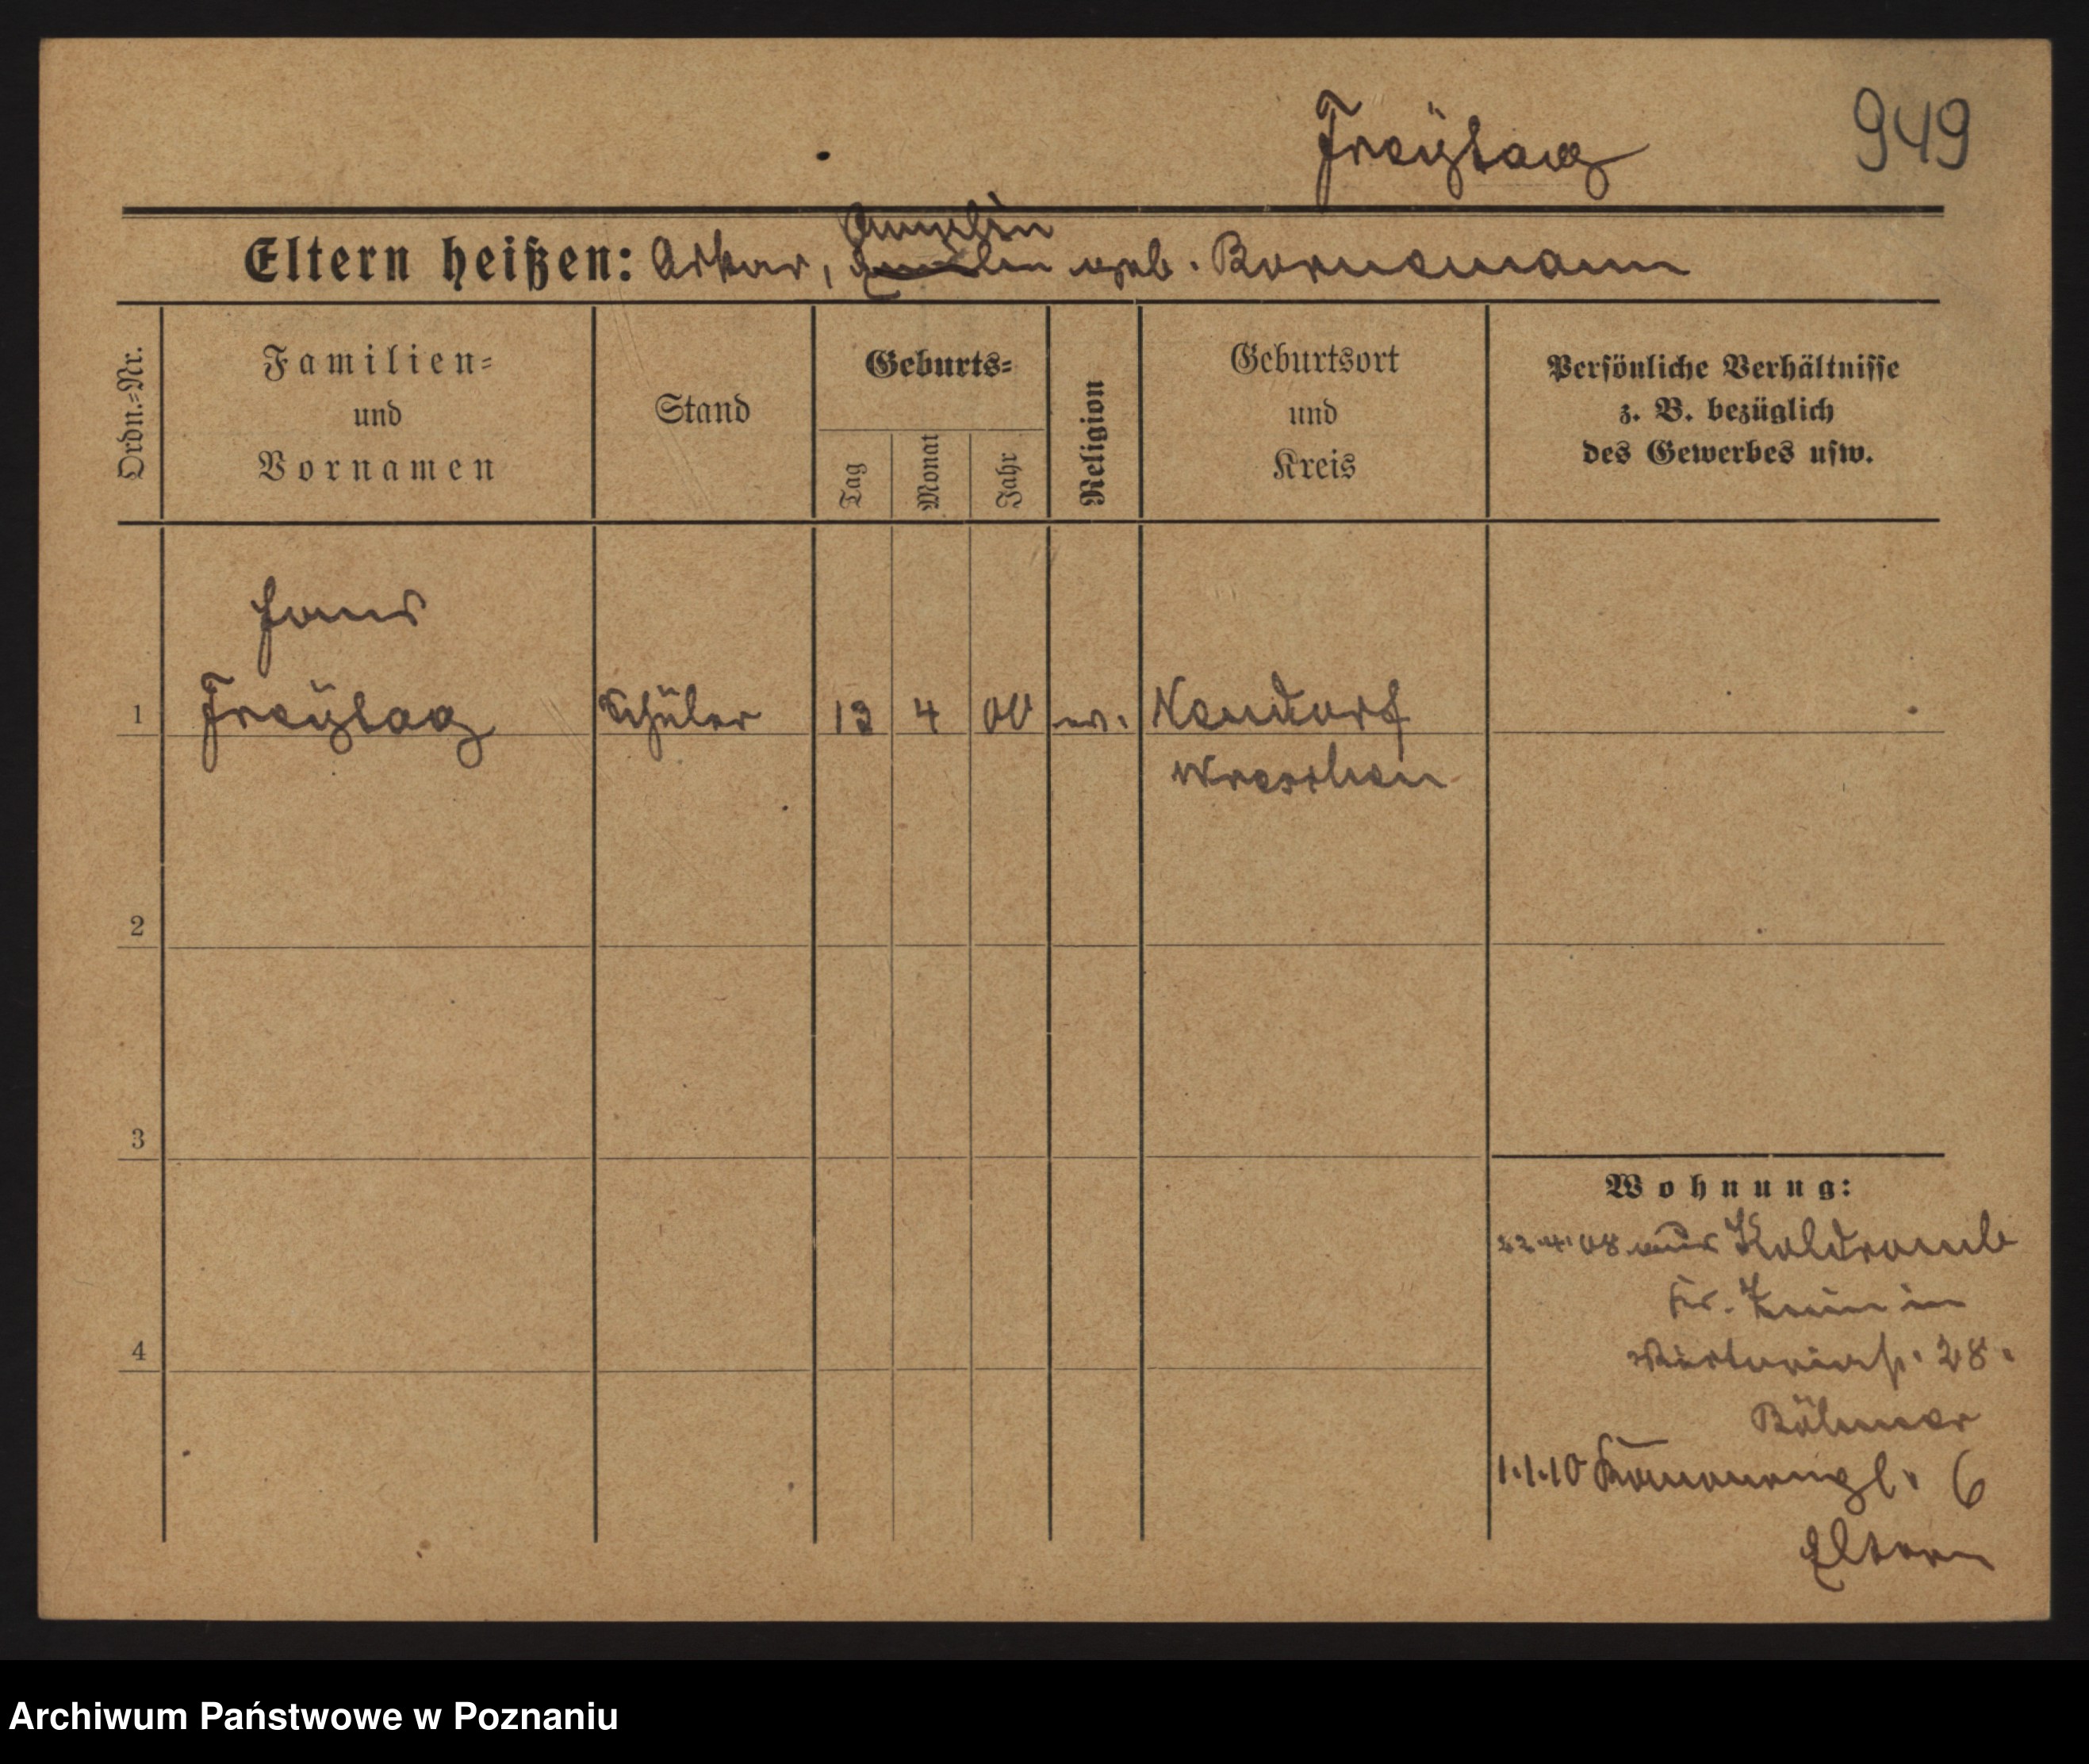 Freÿtag
949
Amalie
Eltern heißen: Oskar, geb. Bornemann
Ordn.-Nr.
Familien-
und
Vornamen
Stand
Geburts-
Tag
Monat
Jahr
Religion
Geburtsort
und
Kreis
Persönliche Verhältnisse
z. B. bezüglich
des Gewerbes usw.
Hans
1 Freÿtag Schüler 13 4 00 ev. Neudorf
Wreschen
2
3
Wohnung:
22.4.08 aus Koldromb
Kr. Znin in
Viktoriastr. 28.
4
Böhmer
1.1.10 6
Eltern
Archiwum Państwowe w Poznaniu